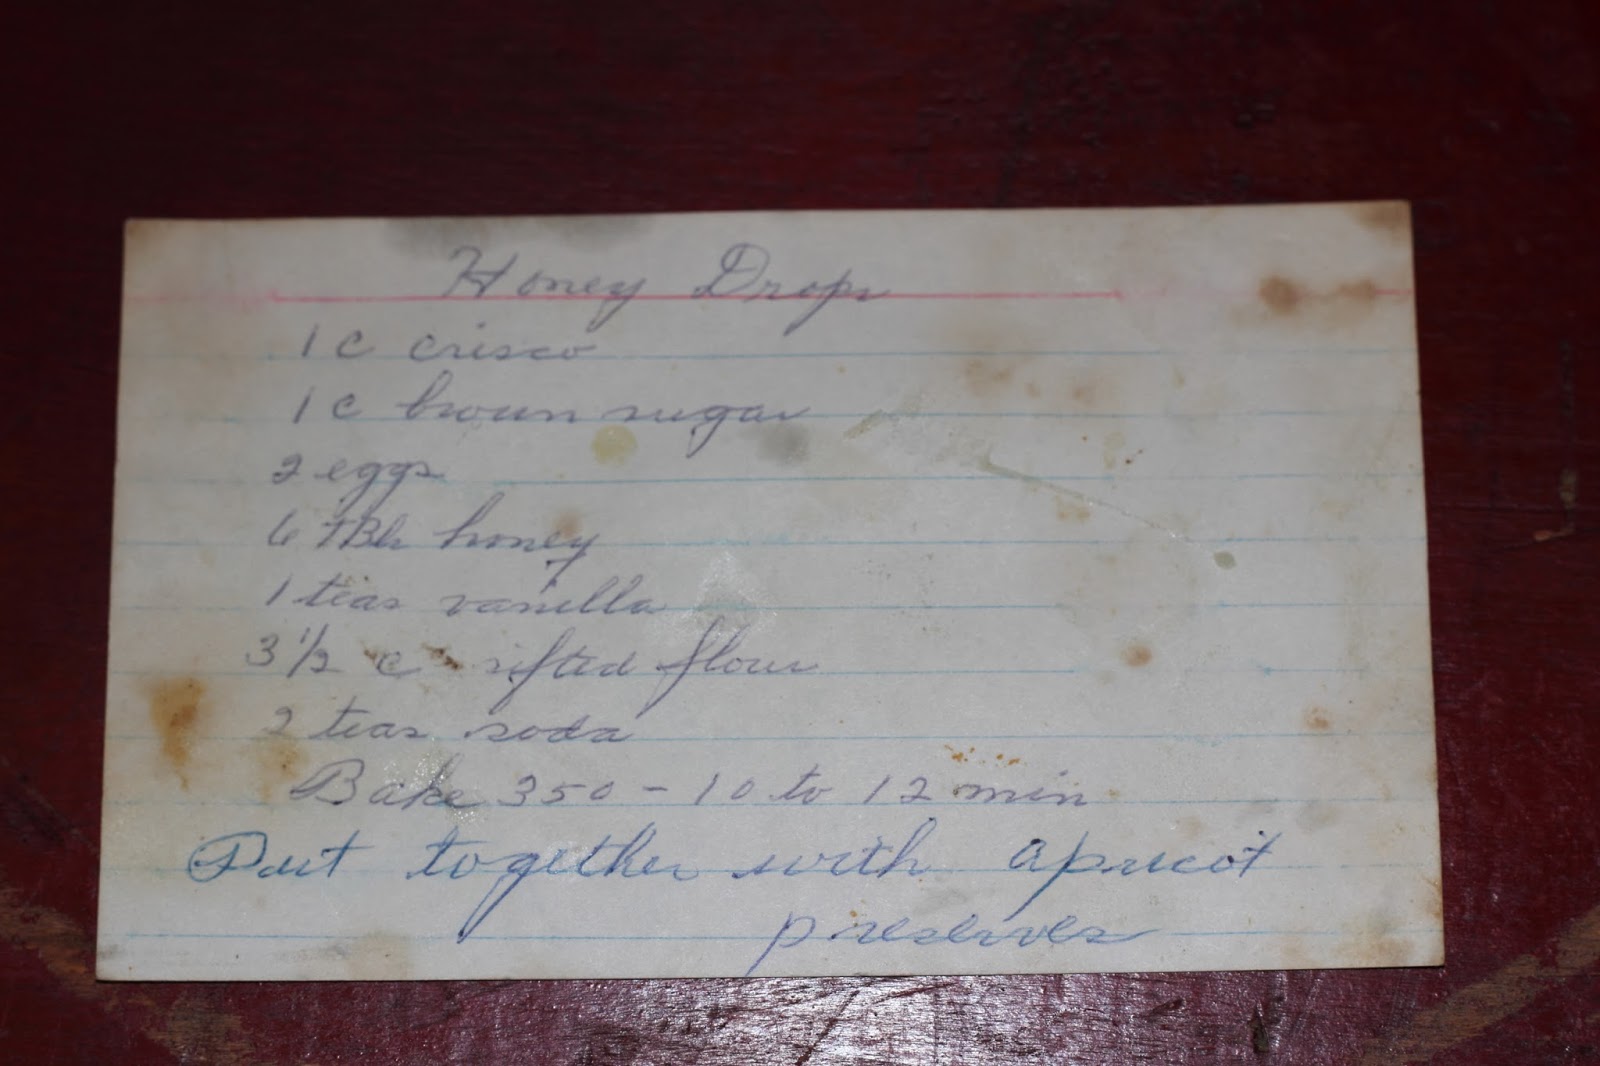 Honey Drops
1 c crisco
1 c brown sugar
2 eggs
6 TBls honey
1 teas vanilla
3 1/2 c sifted flour
2 teas soda
Bake 350 - 10 to 12 min
Put together with apricot
preserves